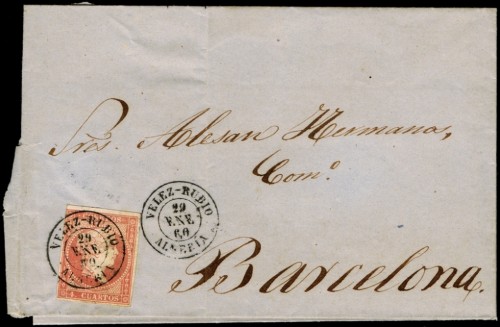 Sres. Alesan Hermanos,
Como.
Barcelona.
VELEZ-RUBIO
29
ENE
60
ALMERIA
VELEZ-RUBIO
29
ENE
60
ALMERIA
CUARTOS